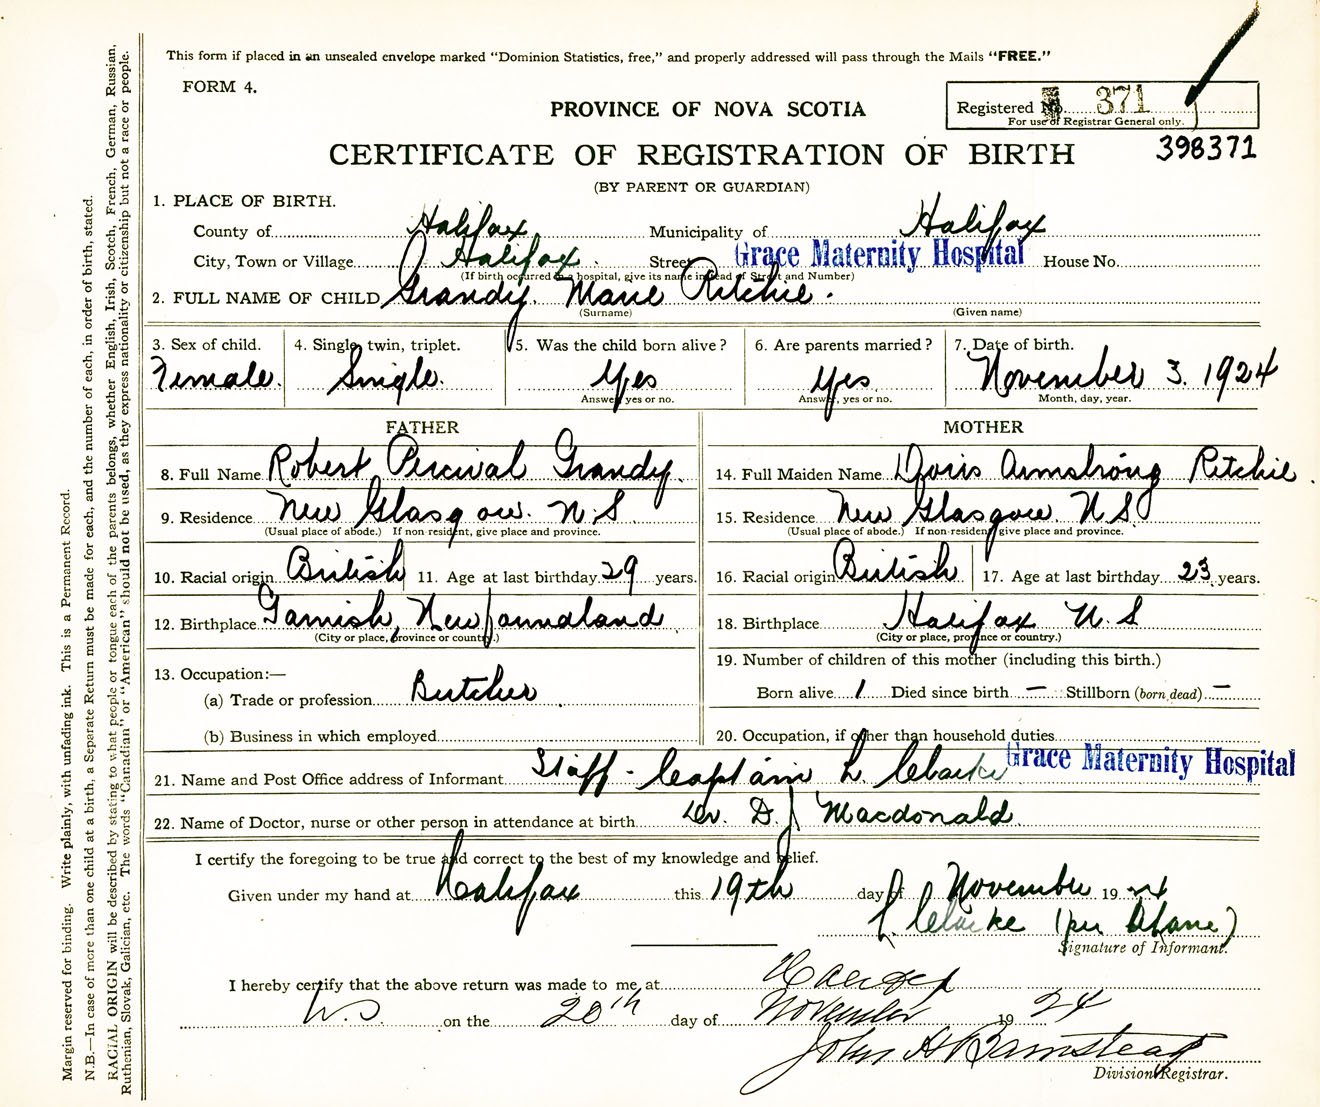 This form if placed in an unsealed envelope marked "Dominion Statistics, free," and properly addressed will pass through the Mails "FREE."
FORM 4.
PROVINCE OF NOVA SCOTIA
Registered No. 371
For use of Registrar General only.
398371
CERTIFICATE OF REGISTRATION OF BIRTH
(BY PARENT OR GUARDIAN)
1. PLACE OF BIRTH.
County of Halifax Municipality of Halifax
City, Town or Village Halifax. Street Grace Maternity Hospital House No.
(If birth occurred in a hospital, give its name instead of Street and Number)
2. FULL NAME OF CHILD Grandy. Marie Ritchie.
(Surname) (Given name)
3. Sex of child. 4. Single, twin, triplet. 5. Was the child born alive? 6. Are parents married? 7. Date of birth.
Female. Single. Yes Yes November 3. 1924
Answer, yes or no. Answer, yes or no. Month, day, year.
FATHER MOTHER
8. Full Name Robert Percival Grandy. 14. Full Maiden Name Doris Armstrong Ritchie.
9. Residence New Glasgow. N.S. 15. Residence New Glasgow. N.S.
(Usual place of abode.) If non-resident, give place and province. (Usual place of abode.) If non-resident give place and province.
10. Racial origin British 11. Age at last birthday 29 years. 16. Racial origin British 17. Age at last birthday 23 years.
12. Birthplace Garnish, Newfoundland 18. Birthplace Halifax N.S
(City or place, province or country.) (City or place, province or country.)
13. Occupation:— 19. Number of children of this mother (including this birth.)
(a) Trade or profession Butcher Born alive 1 Died since birth — Stillborn (born dead) —
(b) Business in which employed 20. Occupation, if other than household duties
21. Name and Post Office address of Informant Staff - Captain L. Clarke Grace Maternity Hospital
22. Name of Doctor, nurse or other person in attendance at birth Dr. D. J Macdonald.
I certify the foregoing to be true and correct to the best of my knowledge and belief.
Given under my hand at Halifax this 19th day of November 19 24
L. Clarke (per
Signature of Informant.
I hereby certify that the above return was made to me at Halifax
N.S. on the 20th day of November 19 24
John H Barnstead
Division Registrar.
Margin reserved for binding. Write plainly, with unfading ink. This is a Permanent Record.
N.B.—In case of more than one child at a birth, a Separate Return must be made for each, and the number of each, in order of birth, stated.
RACIAL ORIGIN will be described by stating to what people or tongue each of the parents belongs, whether English, Irish, Scotch, French, German, Russian,
Ruthenian, Slovak, Galician, etc. The words "Canadian" or "American" should not be used, as they express nationality or citizenship but not a race or people.